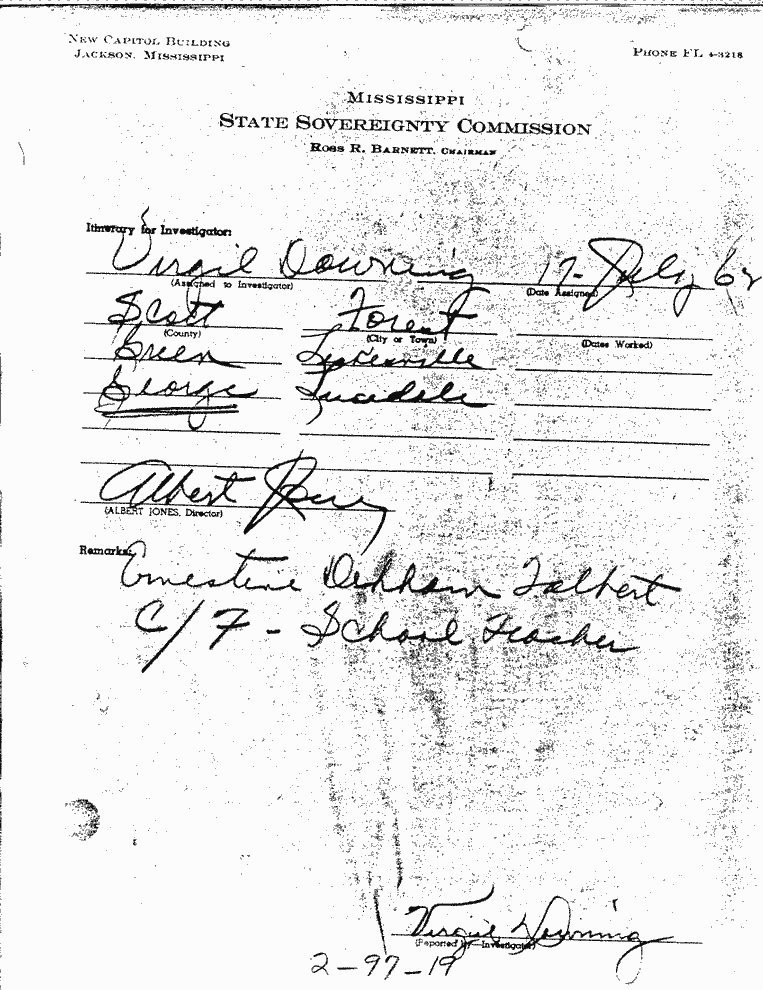 NEW CAPITOL BUILDING
JACKSON, MISSISSIPPI
PHONE FL 4-3218
MISSISSIPPI
STATE SOVEREIGNTY COMMISSION
ROSS R. BARNETT, CHAIRMAN
Itinerary for Investigator:
Virgil Downing 17-July 62
(Assigned to Investigator) (Date Assigned)
Scott Forest
(County) (City or Town) (Dates Worked)
Green Leakesville
George Lucedale
Albert Jones
(ALBERT JONES, Director)
Remarks:
Ernestine Denham Talbert
C/F - School Teacher
Virgil Downing
(Reported by Investigator)
2-97-19